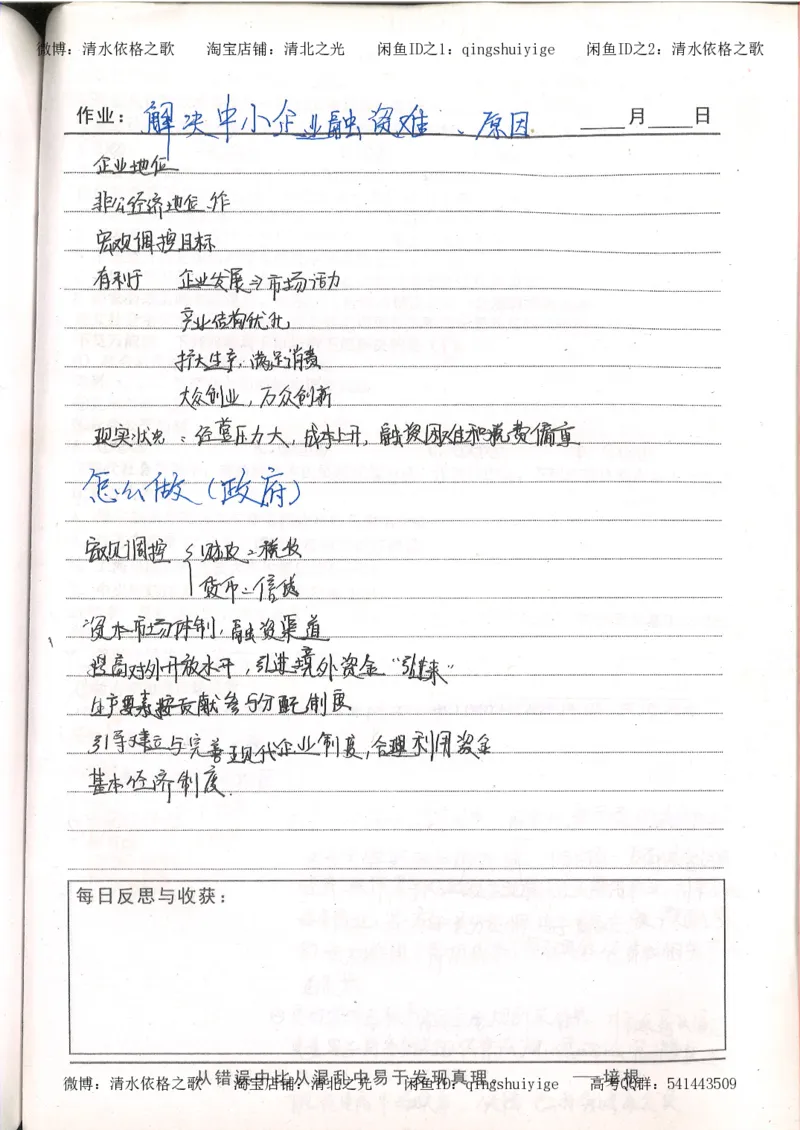 微博：清水依格之歌 淘宝店铺：清北之光 闲鱼ID之1：qingshuiyige 闲鱼ID之2：清水依格之歌
作业：解决中小企业融资难、原因 ____月____日
企业地位
非公经济地位、作
宏观调控目标
有利于 企业发展→市场活力
产业结构优化
扩大生产，满足消费
大众创业，万众创新
现实状况：经营压力大，成本上升，融资困难和税费偏重
怎么做（政府）
宏观调控 财政：税收
货币：信贷
资本市场体制，融资渠道
提高对外开放水平，引进境外资金“引进来”
生产要素按贡献参与分配制度
引导建立与完善现代企业制度，合理利用资金
基本经济制度.
每日反思与收获：
从错误中比从混乱中易于发现真理 ——培根
微博：清水依格之歌 淘宝店铺：清北之光 闲鱼ID：qingshuiyige 高考QQ群：541443509